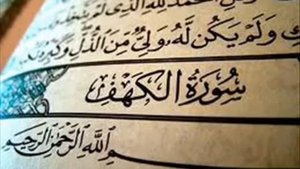 لحمد لله الذى لم
ك ولم يكن له ولي من الذل وكبره
سورة الكهف
ـم الله الرحمن الرحيم